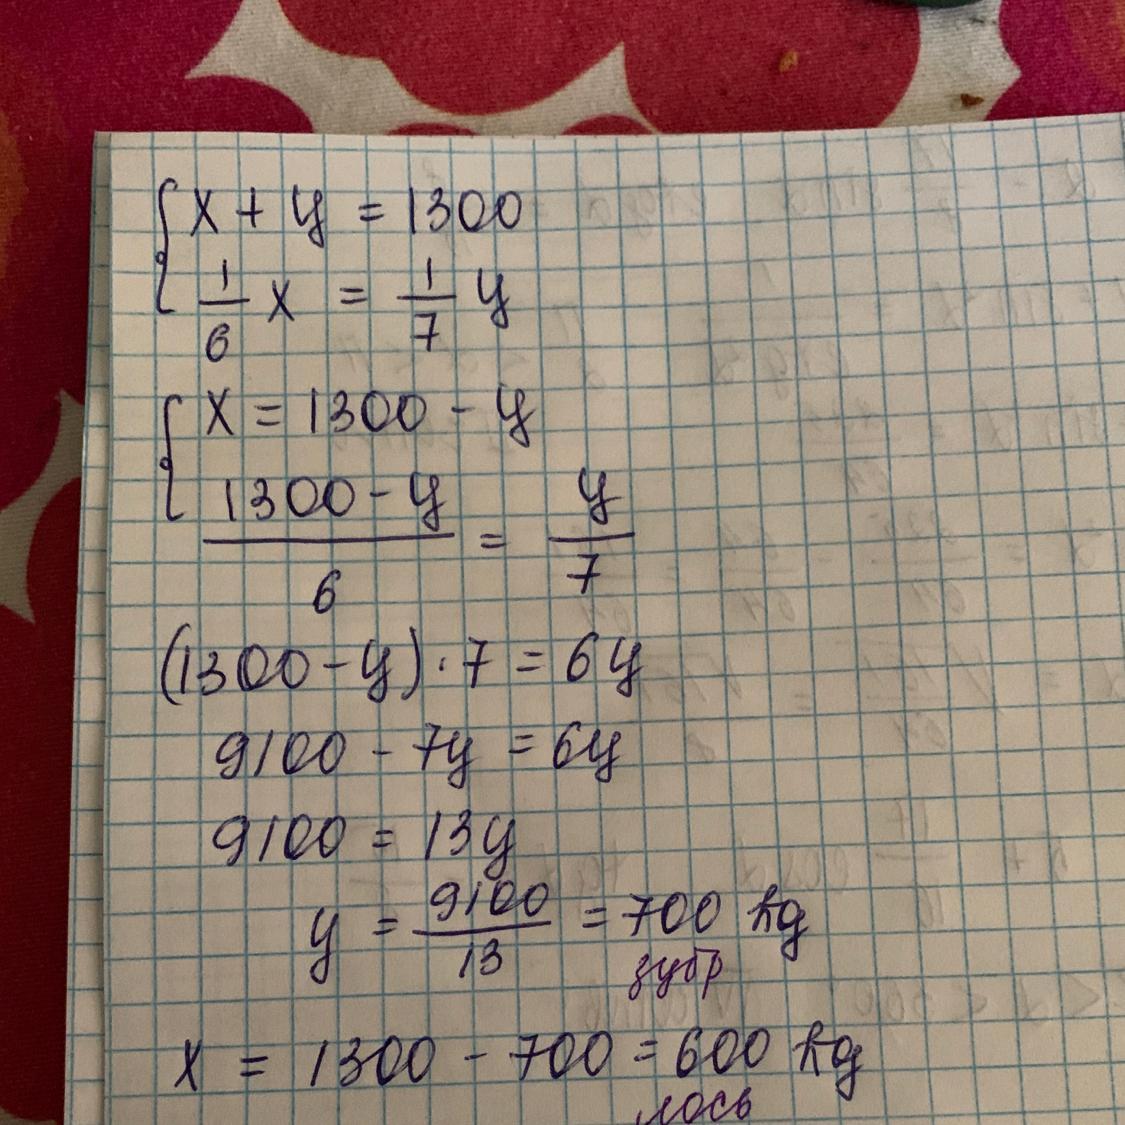 x + y = 1300
1/6 x = 1/7 y
x = 1300 - y
(1300 - y)/6 = y/7
(1300 - y) · 7 = 6y
9100 - 7y = 6y
9100 = 13y
y = 9100/13 = 700 kg
зубр
x = 1300 - 700 = 600 kg
лось